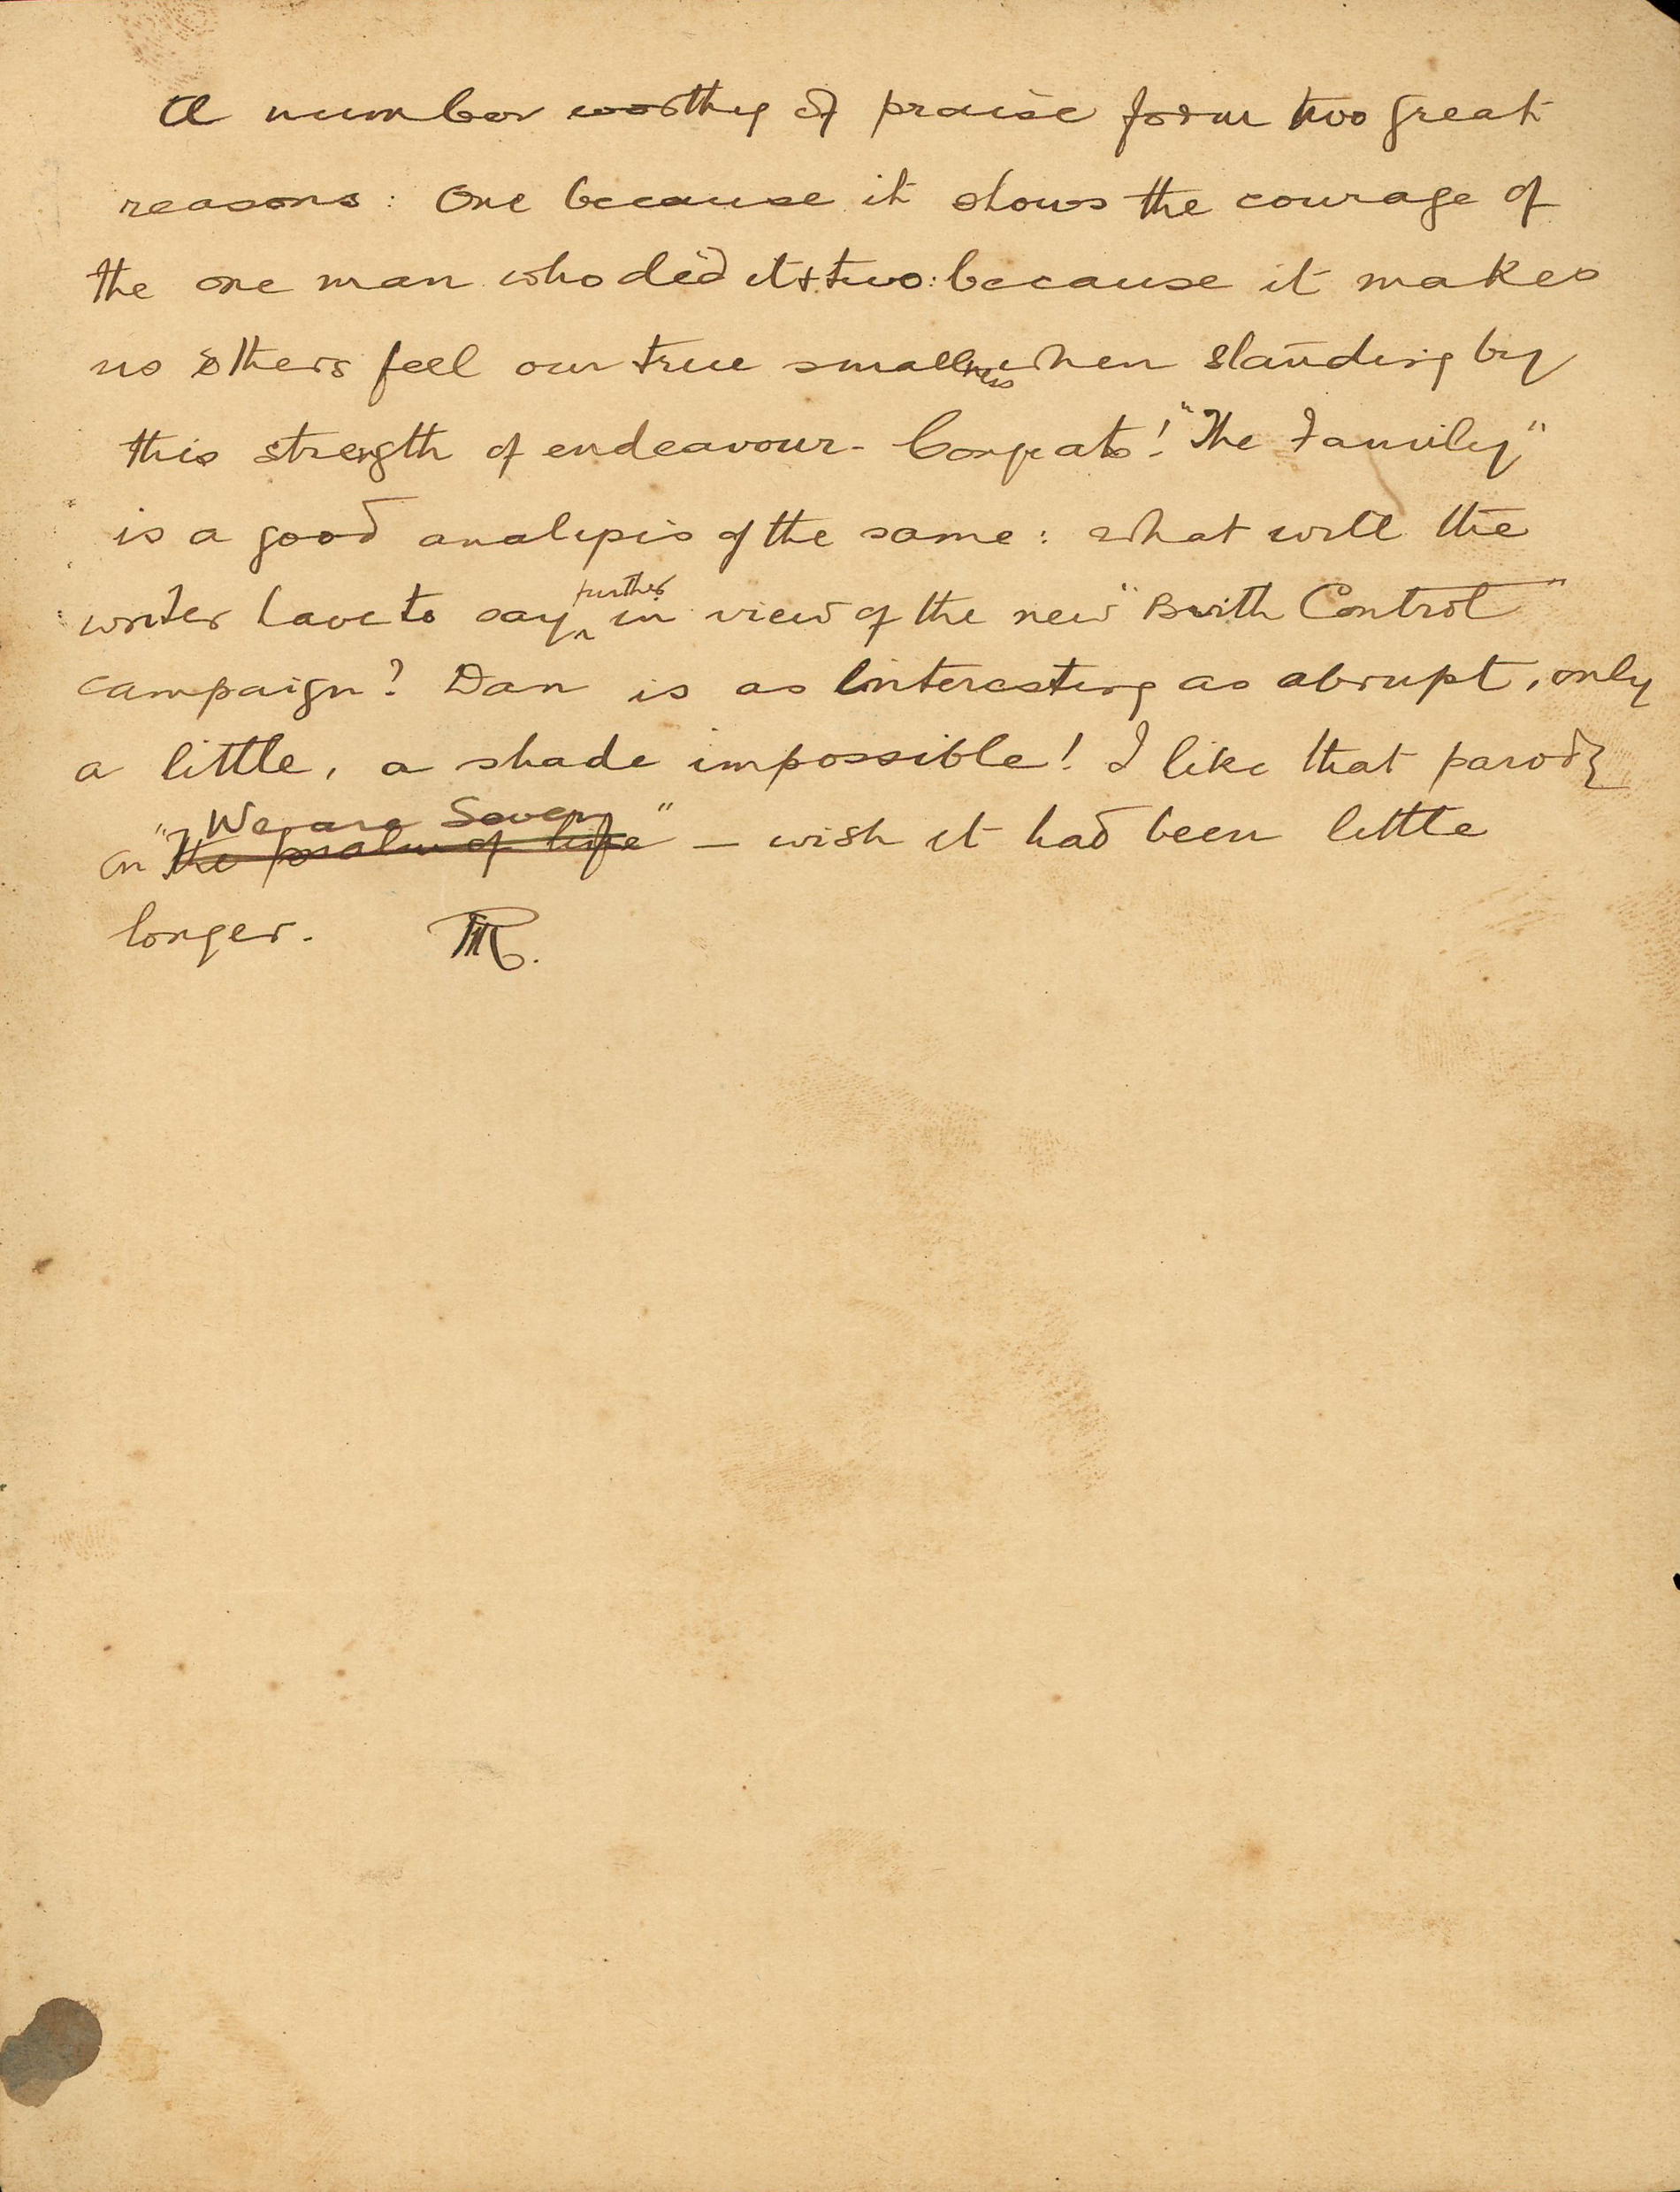 A number worthy of praise form two great
reasons: One because it shows the courage of
the one man who did it & two: because it makes
us others feel our true smallness when standing by
this strength of endeavour - Congrats! "The Family"
is a good analysis of the same: what will the
writer have to say further in view of the new "Birth Control"
campaign? Dan is as interesting as abrupt, only
a little, a shade impossible! I like that parody
"We are Seven"
on "The psalm of life" — wish it had been little
longer. TR.